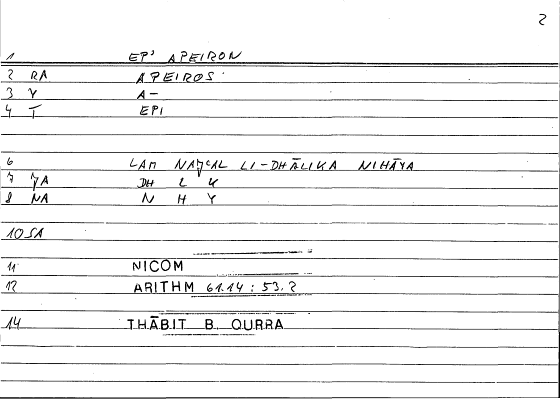 2
1 EP' APEIRON
2 RA APEIROS
3 Y A-
4 T EPI
6 LAM NAǦʿAL LI-DHĀLIKA NIHĀYA
7 ǦA DH L K
8 NA N H Y
10 SA
11 NICOM
12 ARITHM 61.14 : 53.2
14 THĀBIT B. QURRA